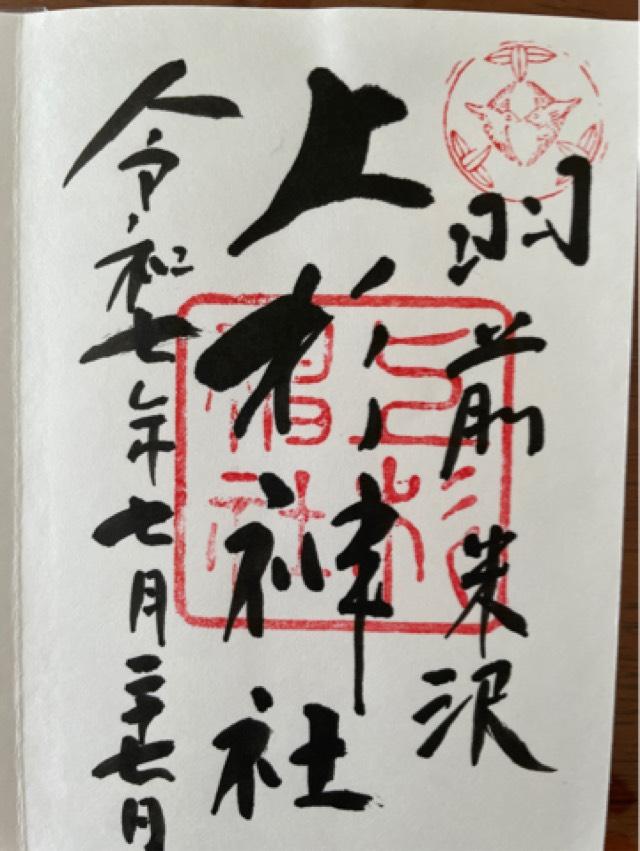 羽前米沢
上杉神社
上杉神社
令和七年七月二十七日